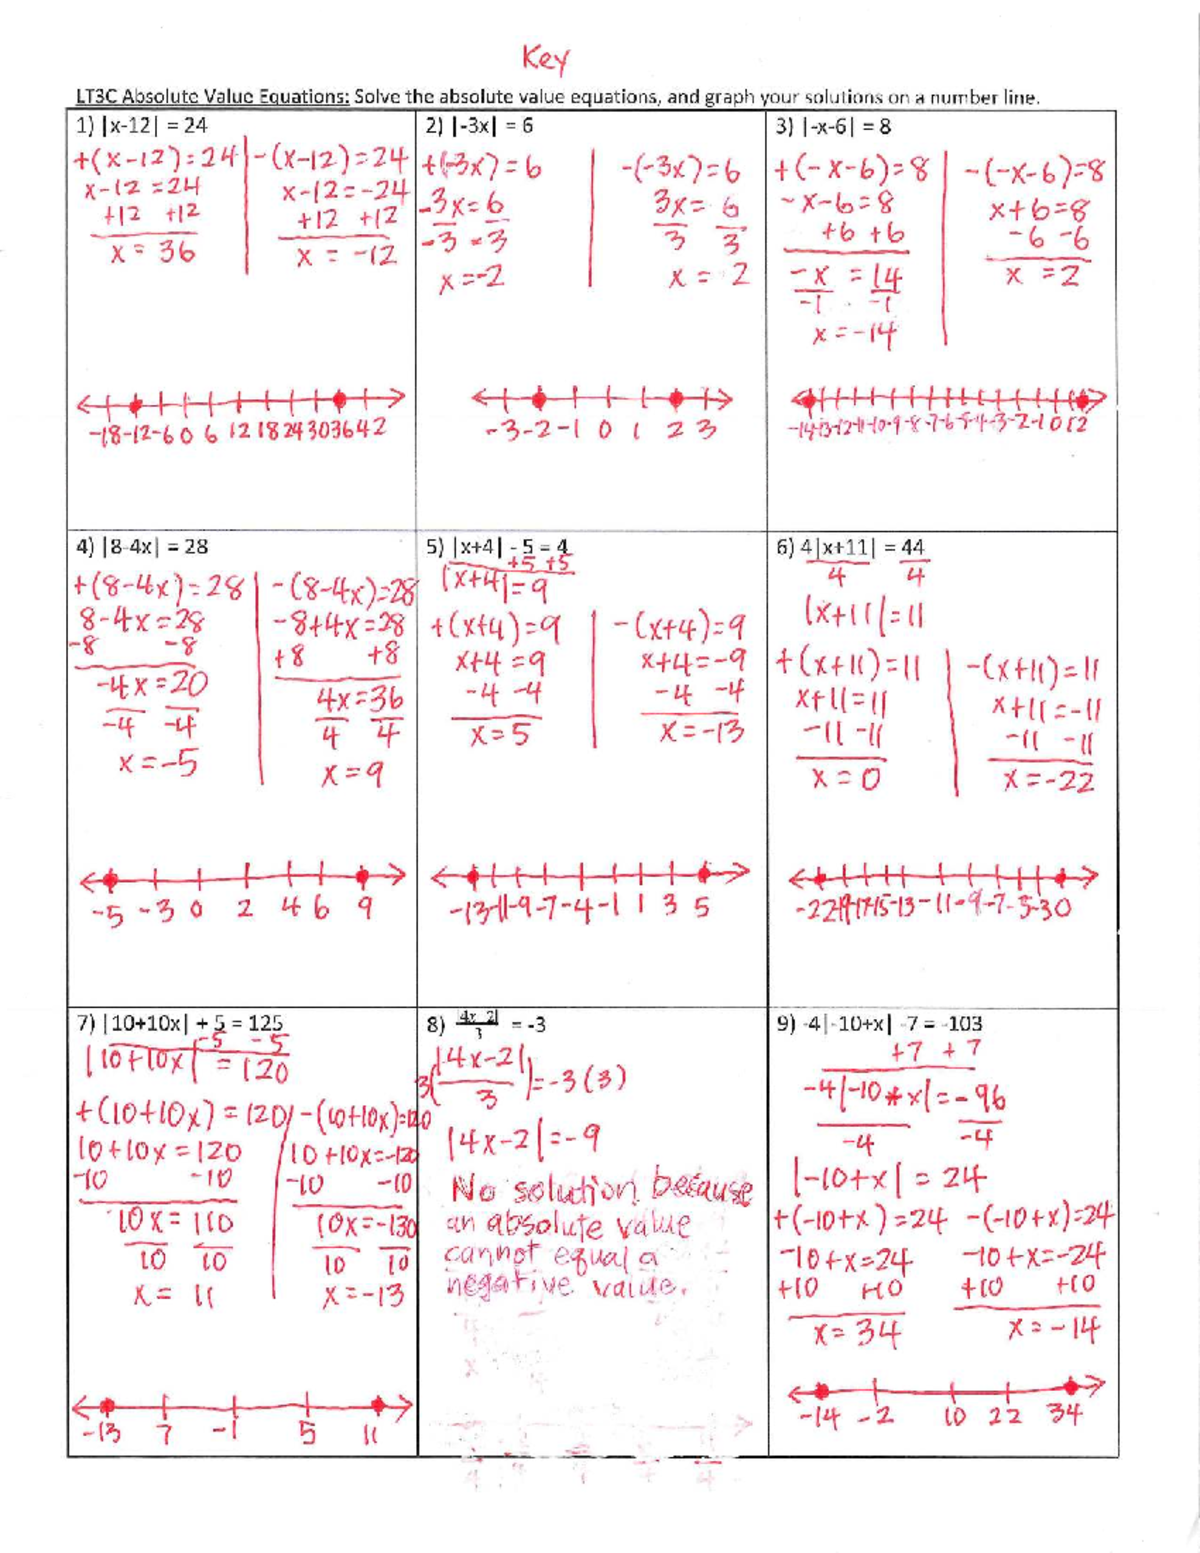 Key
LT3C Absolute Value Equations: Solve the absolute value equations, and graph your solutions on a number line.
1) |x-12| = 24
+(x-12)=24 -(x-12)=24
x-12=24 x-12=-24
+12 +12 +12 +12
x = 36 x = -12
-18 -12 -6 0 6 12 18 24 30 36 42
2) |-3x| = 6
+(-3x)=6 -(-3x)=6
-3x=6 3x=6
-3 -3 3 3
x=-2 x = 2
-3 -2 -1 0 1 2 3
3) |-x-6| = 8
+(-x-6)=8 -(-x-6)=8
-x-6=8 x+6=8
+6 +6 -6 -6
-x = 14 x = 2
-1 -1
x=-14
-14 -13 -12 -11 -10 -9 -8 -7 -6 -5 -4 -3 -2 -1 0 1 2
4) |8-4x| = 28
+(8-4x)=28 -(8-4x)=28
8-4x=28 -8+4x=28
-8 -8 +8 +8
-4x=20 4x=36
-4 -4 4 4
x=-5 x=9
-5 -3 0 2 4 6 9
5) |x+4| - 5 = 4
+5 +5
|x+4|=9
+(x+4)=9 -(x+4)=9
x+4=9 x+4=-9
-4 -4 -4 -4
x=5 x=-13
-13 -11 -9 -7 -4 -1 1 3 5
6) 4|x+11| = 44
4 4
|x+11|=11
+(x+11)=11 -(x+11)=11
x+11=11 x+11=-11
-11 -11 -11 -11
x=0 x=-22
-22 -19 -17 -15 -13 -11 -9 -7 -5 -3 0
7) |10+10x| + 5 = 125
-5 -5
|10+10x| = 120
+(10+10x)=120 -(10+10x)=120
10+10x=120 10+10x=-120
-10 -10 -10 -10
10x=110 10x=-130
10 10 10 10
x= 11 x=-13
-13 7 -1 5 11
8) |4x-2| = -3
3
3(|4x-2|)=-3(3)
3
|4x-2|=-9
No solution because
an absolute value
cannot equal a
negative value.
9) -4|-10+x| -7 = -103
+7 +7
-4|-10+x|=-96
-4 -4
|-10+x| = 24
+(-10+x)=24 -(-10+x)=24
-10+x=24 -10+x=-24
+10 +10 +10 +10
x=34 x=-14
-14 -2 10 22 34